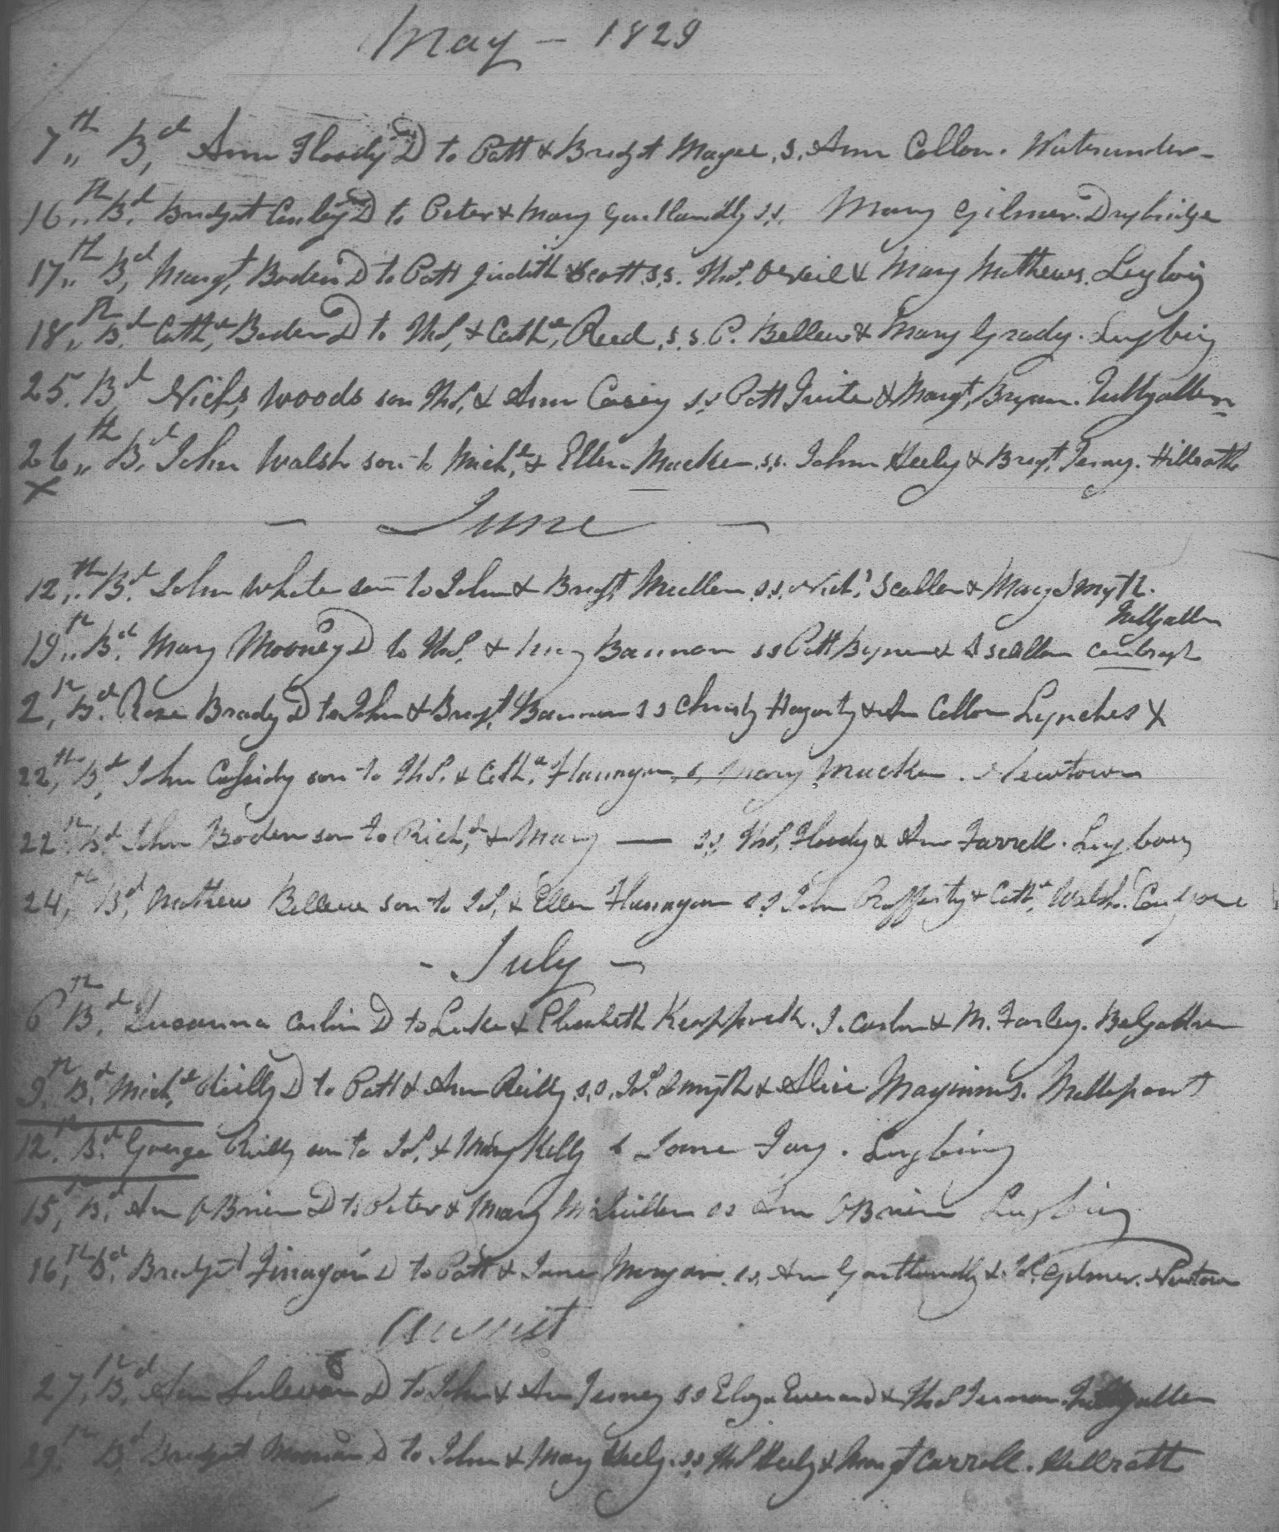 May - 1829
7th Bd Ann Floody D to Patt & Bridgt Magee, s. Ann Collon. Waterunder-
16th Bd Bridget Conley D to Peter & Mary Gartlandly ss. Mary Gilmer. Drybridge
17th Bd Margt Boden D to Patt Judith Scott ss. Ths. & Mary Mathews.
18th Bd Cathe Boden D to Ths. & Cathe Reed, s.s. P. Bellew & Mary Grady.
25. Bd Nichs Woods son Ths. & Ann Casey ss Patt & Margt Bryan. Tullyallen
26th Bd John Walsh son to Michl & Ellen Macken ss. John Heely & Brigt. Hillrath
X
- June -
12th Bd John White son to John & Brigt Mullen ss. Nichs Scallen & Mary Smyth.
Tullyallen
19th Bd Mary Mooney D to Ths. & Bannon ss Patt Byrne & Scallen
2 Bd Rose Brady D to John & Brigt Bannon ss Christy Hagerty & An Collon Lynches X
22th Bd John Cassidy son to Ths. & Cathe Flanagan s, Mary Macken. Newtown
22th Bd John Boden son to Richd & Mary — ss, Ths. Floody & Ann Farrell.
24th Bd Mathew Bellew son to Js. & Ellen Flanagan ss John Rafferty & Cathe Walsh.
- July -
6th Bd Susanna Carlin D to Luke & Elisabeth J. Carlin & M. Farley. Balgathern
9th Bd Michl Reilly D to Patt & Ann Reilly s.s. Js. Smyth & Alice Maginnis. Mellifont
12th Bd George Reilly son to Js. & Mary Kelly s Jane Fay.
15th Bd Ann OBrien D to Peter & Mary ss Ann OBrien
16th Bd Bridget Finagan D to Patt & Jane Morgan ss. Ann Gartlandly & Gilmer. Newtown
August
27th Bd Ann D to John & Ann Terney ss Eliza Everard & Ths Tullyallen
29th Bd Bridget D to John & Mary Heely ss Ths Heely & Margt Carroll. Hillrath